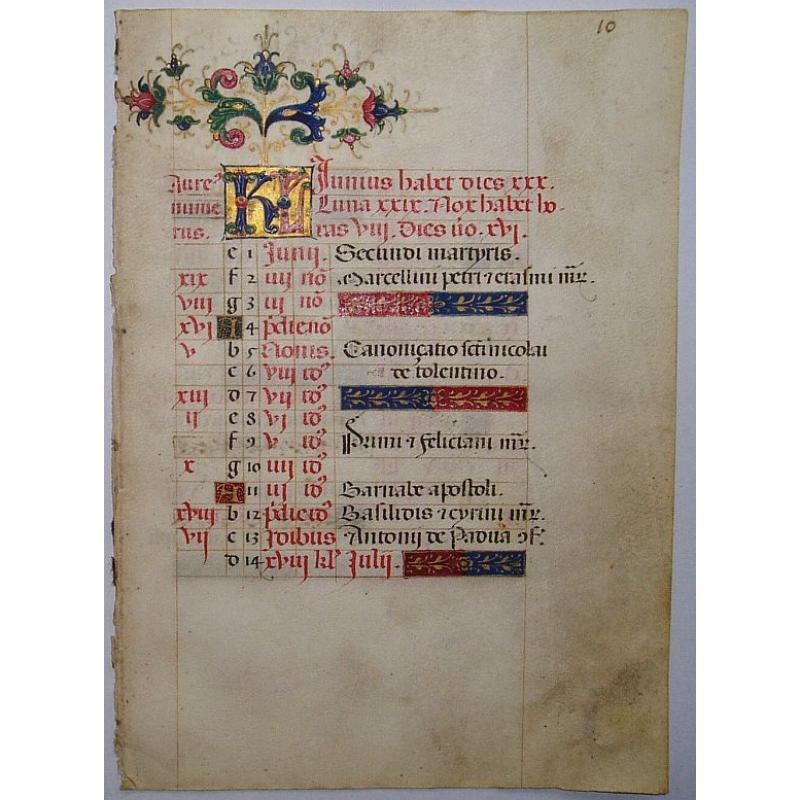 10
Aure⁹ KL Junius habet dies xxx.
nume Luna xxix. Nox habet ho-
rus. ras viij. Dies uo. xvj.
e 1 Junij. Secundi martyris.
xix f 2 iiij nō Marcellini petri ⁊ erasmi mr̄.
viij g 3 iij nō
xvj A 4 pdie nō
v b 5 Nonis. Canonicatio scti nicolai
c 6 viij id⁹ de tolentino.
xiij d 7 vij id⁹
ij e 8 vj id⁹
f 9 v id⁹ Primi ⁊ feliciani mr̄.
x g 10 iiij id⁹
A 11 iij id⁹ Barnabe apostoli.
xviij b 12 pdie id⁹ Basilidis ⁊ cyrini mr̄.
vij c 13 Idibus Antonij de Padua ↄf.
d 14 xviij kl' Julij.